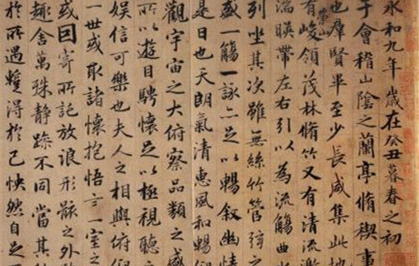 永和九年歲在癸丑暮春之初
會稽山陰之蘭亭脩稧事
也羣賢畢至少長咸集此地
有崇山峻領茂林脩竹又有清流激
湍暎帶左右引以為流觴曲水
列坐其次雖無絲竹管弦之
盛一觴一詠亦足以暢敘幽情
是日也天朗氣清惠風和暢
觀宇宙之大俯察品類之盛
所以遊目騁懷足以極視聽
娛信可樂也夫人之相與俯仰
一世或取諸懷抱悟言一室之
或因寄所託放浪形骸之外
趣舍萬殊靜躁不同當其
於所遇蹔得於己怏然自足